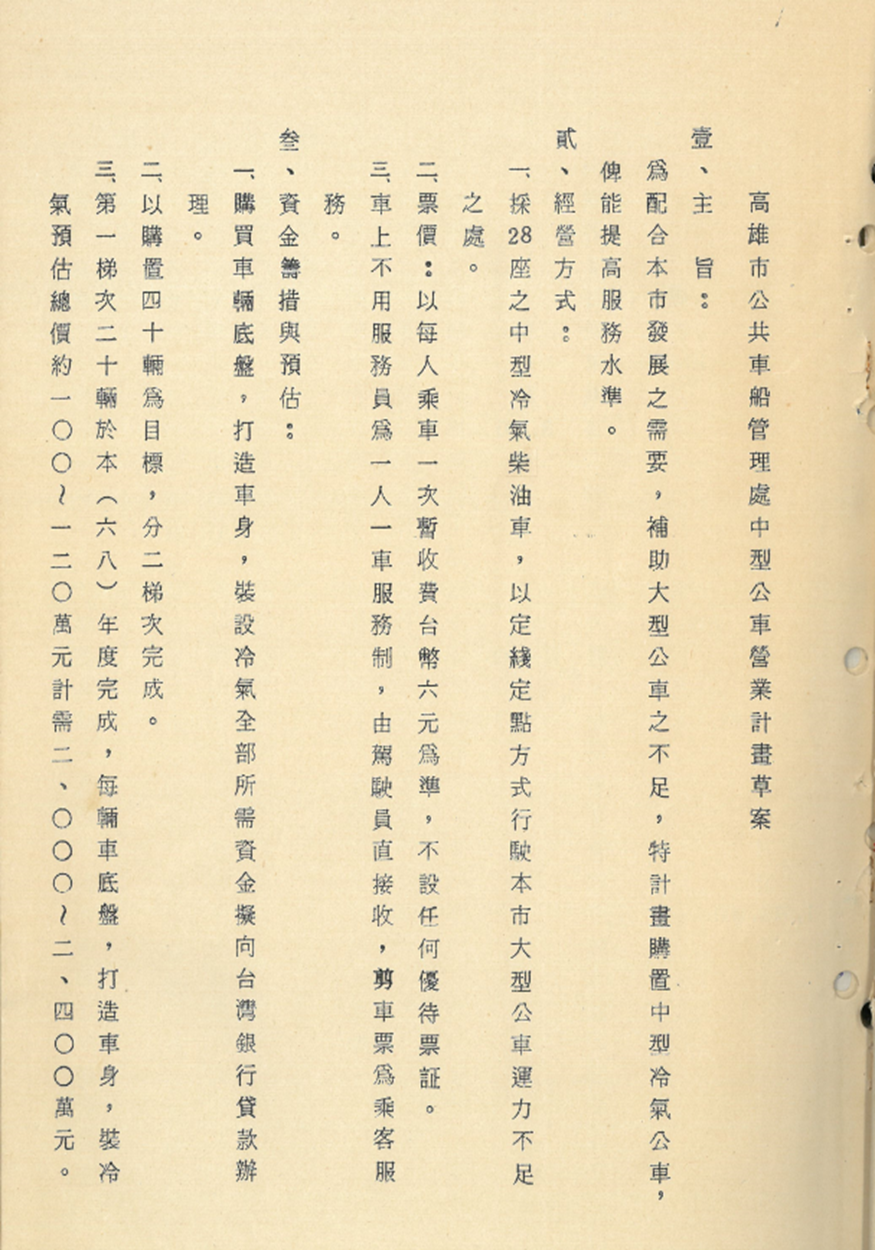 高雄市公共車船管理處中型公車營業計畫草案
壹、主　旨：
為配合本市發展之需要，補助大型公車之不足，特計畫購置中型冷氣公車，
俾能提高服務水準。
貳、經營方式：
一、採28座之中型冷氣柴油車，以定綫定點方式行駛本市大型公車運力不足
之處。
二、票價：以每人乘車一次暫收費台幣六元為準，不設任何優待票証。
三、車上不用服務員為一人一車服務制，由駕駛員直接收，剪車票為乘客服
務。
叁、資金籌措與預估：
一、購買車輛底盤，打造車身，裝設冷氣全部所需資金擬向台灣銀行貸款辦
理。
二、以購置四十輛為目標，分二梯次完成。
三、第一梯次二十輛於本（六八）年度完成，每輛車底盤，打造車身，裝冷
氣預估總價約一〇〇～一二〇萬元計需二、〇〇〇～二、四〇〇萬元。